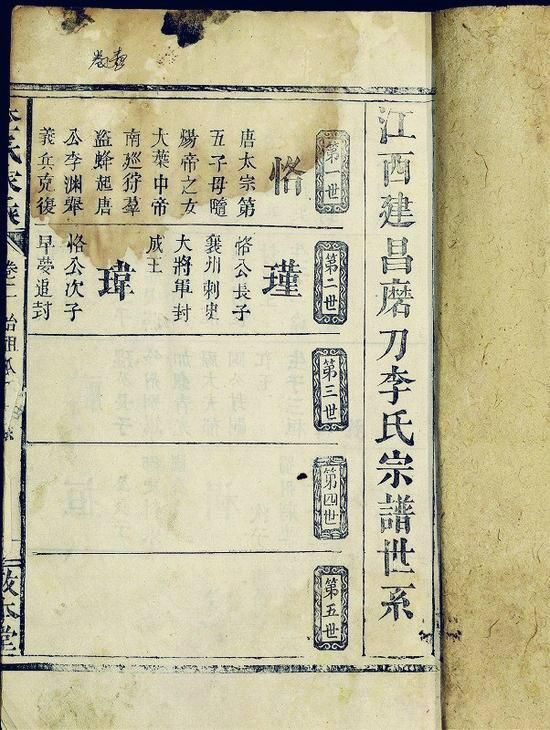 江西建昌磨刀李氏宗譜世系
第一世
恪
唐太宗第
五子母隨
煬帝之女
大葉中帝
南廵狩羣
盗蜂起唐
公李渊舉
義兵克復
第二世
瑾
恪公長子
襄州刺史
大將軍封
成王
瑋
恪公次子
早夢追封
第三世
第四世
第五世
李氏宗譜
卷
敦本堂